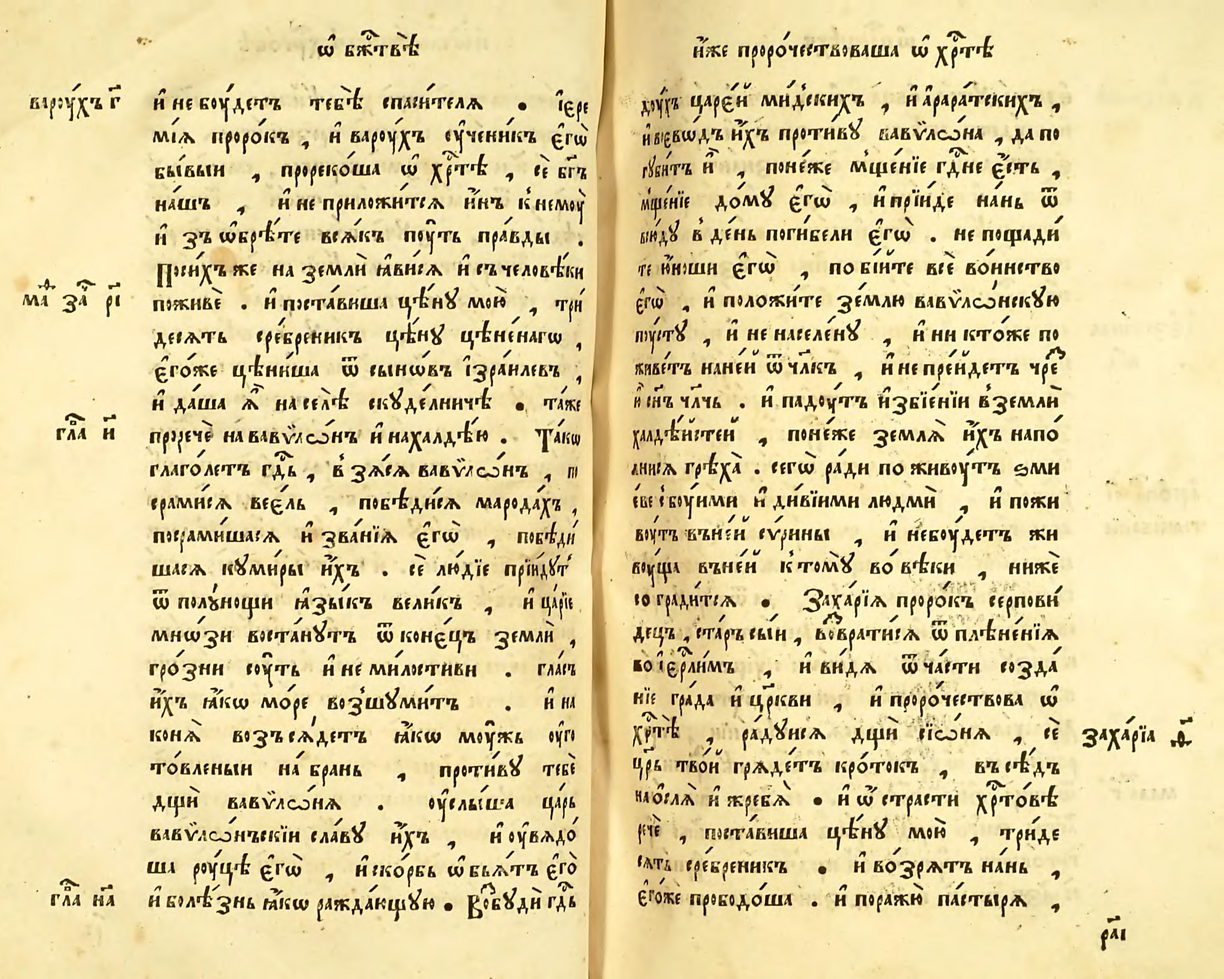 ѡ҆ бж҃твѣ
варꙋ́хъ г҃
и҆ не бꙋ́детъ тебѣ̀ спаси́телѧ . і҆ере
мі́ѧ проро́къ , и҆ варꙋ́хъ ᲂу҆чени́къ є҆гѡ̀
бы́выи , прореко́ша ѡ҆ хр҃тѣ̀ , се̏ бг҃ъ
на́шъ , и҆ не приложи́тсѧ и҆́нъ к немꙋ̀
и҆ зъѡбрѣ́те всѧ́къ пꙋ́ть пра́вды .
Поси́хъ же на землѝ ꙗ҆ви́сѧ и҆ съ человѣ́ки
мѳ҃ за҃ рі҃
поживѐ . и҆ поста́виша цѣ́нꙋ мою̀ , три́
десѧть сре́бреникъ цѣ́нꙋ цѣне́нагѡ ,
є҆го́же цѣни́ша ѿ сынѡ́въ і҆зра́илевъ ,
и҆ да́ша ѧ҆̀ на селѣ̀ скꙋде́лничѣ . та́же
гл҃а н҃
прорече̏ на вавѷлѡ́нъ и҆ на халдѣ́ю . Та́кѡ
глаго́летъ гд҃ь , взѧ́сѧ вавѷлѡ́нъ , по
срами́сѧ веєль , побѣди́сѧ марода́хъ ,
посрами́шасѧ и҆ зва́нїѧ є҆гѡ̀ , побѣди́
шасѧ кꙋми́ры и҆́хъ . се̏ лю́дїе прїи́дꙋт
ѿ полꙋ́нощи ꙗ҆зы́къ вели́къ , и҆ ца́рїе
мно́зи воста́нꙋтъ ѿ коне́цъ землѝ ,
гро́зни сꙋ́ть и҆ не ми́лостиви . гла́съ
и҆́хъ ꙗ҆́кѡ мо́ре возшꙋми́тъ . и҆ на
конѧ̀ возъсѧ́детъ ꙗ҆́кѡ мꙋ́жь ᲂу҆го
то́вленыи на́ брань , проти́вꙋ тебѐ
дщѝ вавѷлѡ́нѧ . ᲂу҆слы́ша ца́рь
вавѷлѡ́нъскїи сла́вꙋ и҆́хъ , и҆ ᲂу҆вѧдо́
ша рꙋ́цѣ є҆гѡ̀ , и҆ ско́рбь ѡ҆бьѧ́тъ є҆го̀
гл҃а на҃
и҆ болѣ́знь ꙗ҆́кѡ ражда́ющꙋю . Возбꙋди̇ гд҃ь
и҆́же проро́чествоваша ѡ҆ хр҃тѣ̀
дꙋ́хъ царе́й ми́дскихъ , и҆ арара́тскихъ ,
и҆ взвѡдъ и҆́хъ проти́вꙋ вавѷлѡ́на , да по
гꙋби́тъ и҆̀ , поне́же мще́нїе гд҃не є҆́сть ,
мще́нїе до́мꙋ є҆гѡ̀ , и҆ прїи́де на́нь ѿ
всю́дꙋ в де́нь поги́бели є҆гѡ̀ . не пощади́
те ю҆́ноши є҆гѡ̀ , побі́йте всѐ во́инство
є҆гѡ̀ , и҆ положи́те зе́млю вавѷлѡ́нскꙋю
пꙋ́стꙋ , и҆ не населе́нꙋ , и҆ ни кто́же по
живе́тъ на не́й ѿ чл҃къ , и҆ не пре́йдетъ чре
и҆ сн҃ъ чл҃чь . и҆ падꙋ́тъ и҆збїе́нїи в землѝ
халдѣ́йстей , поне́же землѧ̀ и҆́хъ напо́
лнисѧ грѣха̀ . сегѡ̀ ра́ди поживꙋ́тъ ѕми
еве с бꙋ́ими и҆ ди́вїими людмѝ , и҆ пожи
вꙋ́тъ в не́й сѵ́рины , и҆ не бꙋ́детъ жи
вꙋ́ща в не́й к томꙋ̀ во́ вѣки , ни́же
согради́тсѧ . Заха́рїѧ проро́къ серпови́
децъ , ста́ръ сы́и , возврати́сѧ ѿ плѣне́нїѧ
во і҆ер҃лимъ , и҆ ви́дѧ ѿ ча́сти созда́
нїе гра́да и҆ цр҃кви , и҆ проро́чествова ѡ҆
хр҃тѣ̀ , ра́дꙋисѧ дщѝ сїѡ́нѧ , се̏
заха́рїа ѳ҃
цр҃ь тво́й грѧде́тъ кро́токъ , въсѣ́дъ
на ослѧ̀ и҆ жребѧ̀ . и҆ ѡ҆ стра́сти хр҃то́вѣ
рече̏ , поста́виша цѣ́нꙋ мою̀ , три́де
сѧть сре́бреникъ . и҆ во́зрѧтъ на́нь ,
є҆го́же прободо́ша . и҆ поражю̀ па́стырѧ ,
ра҃і